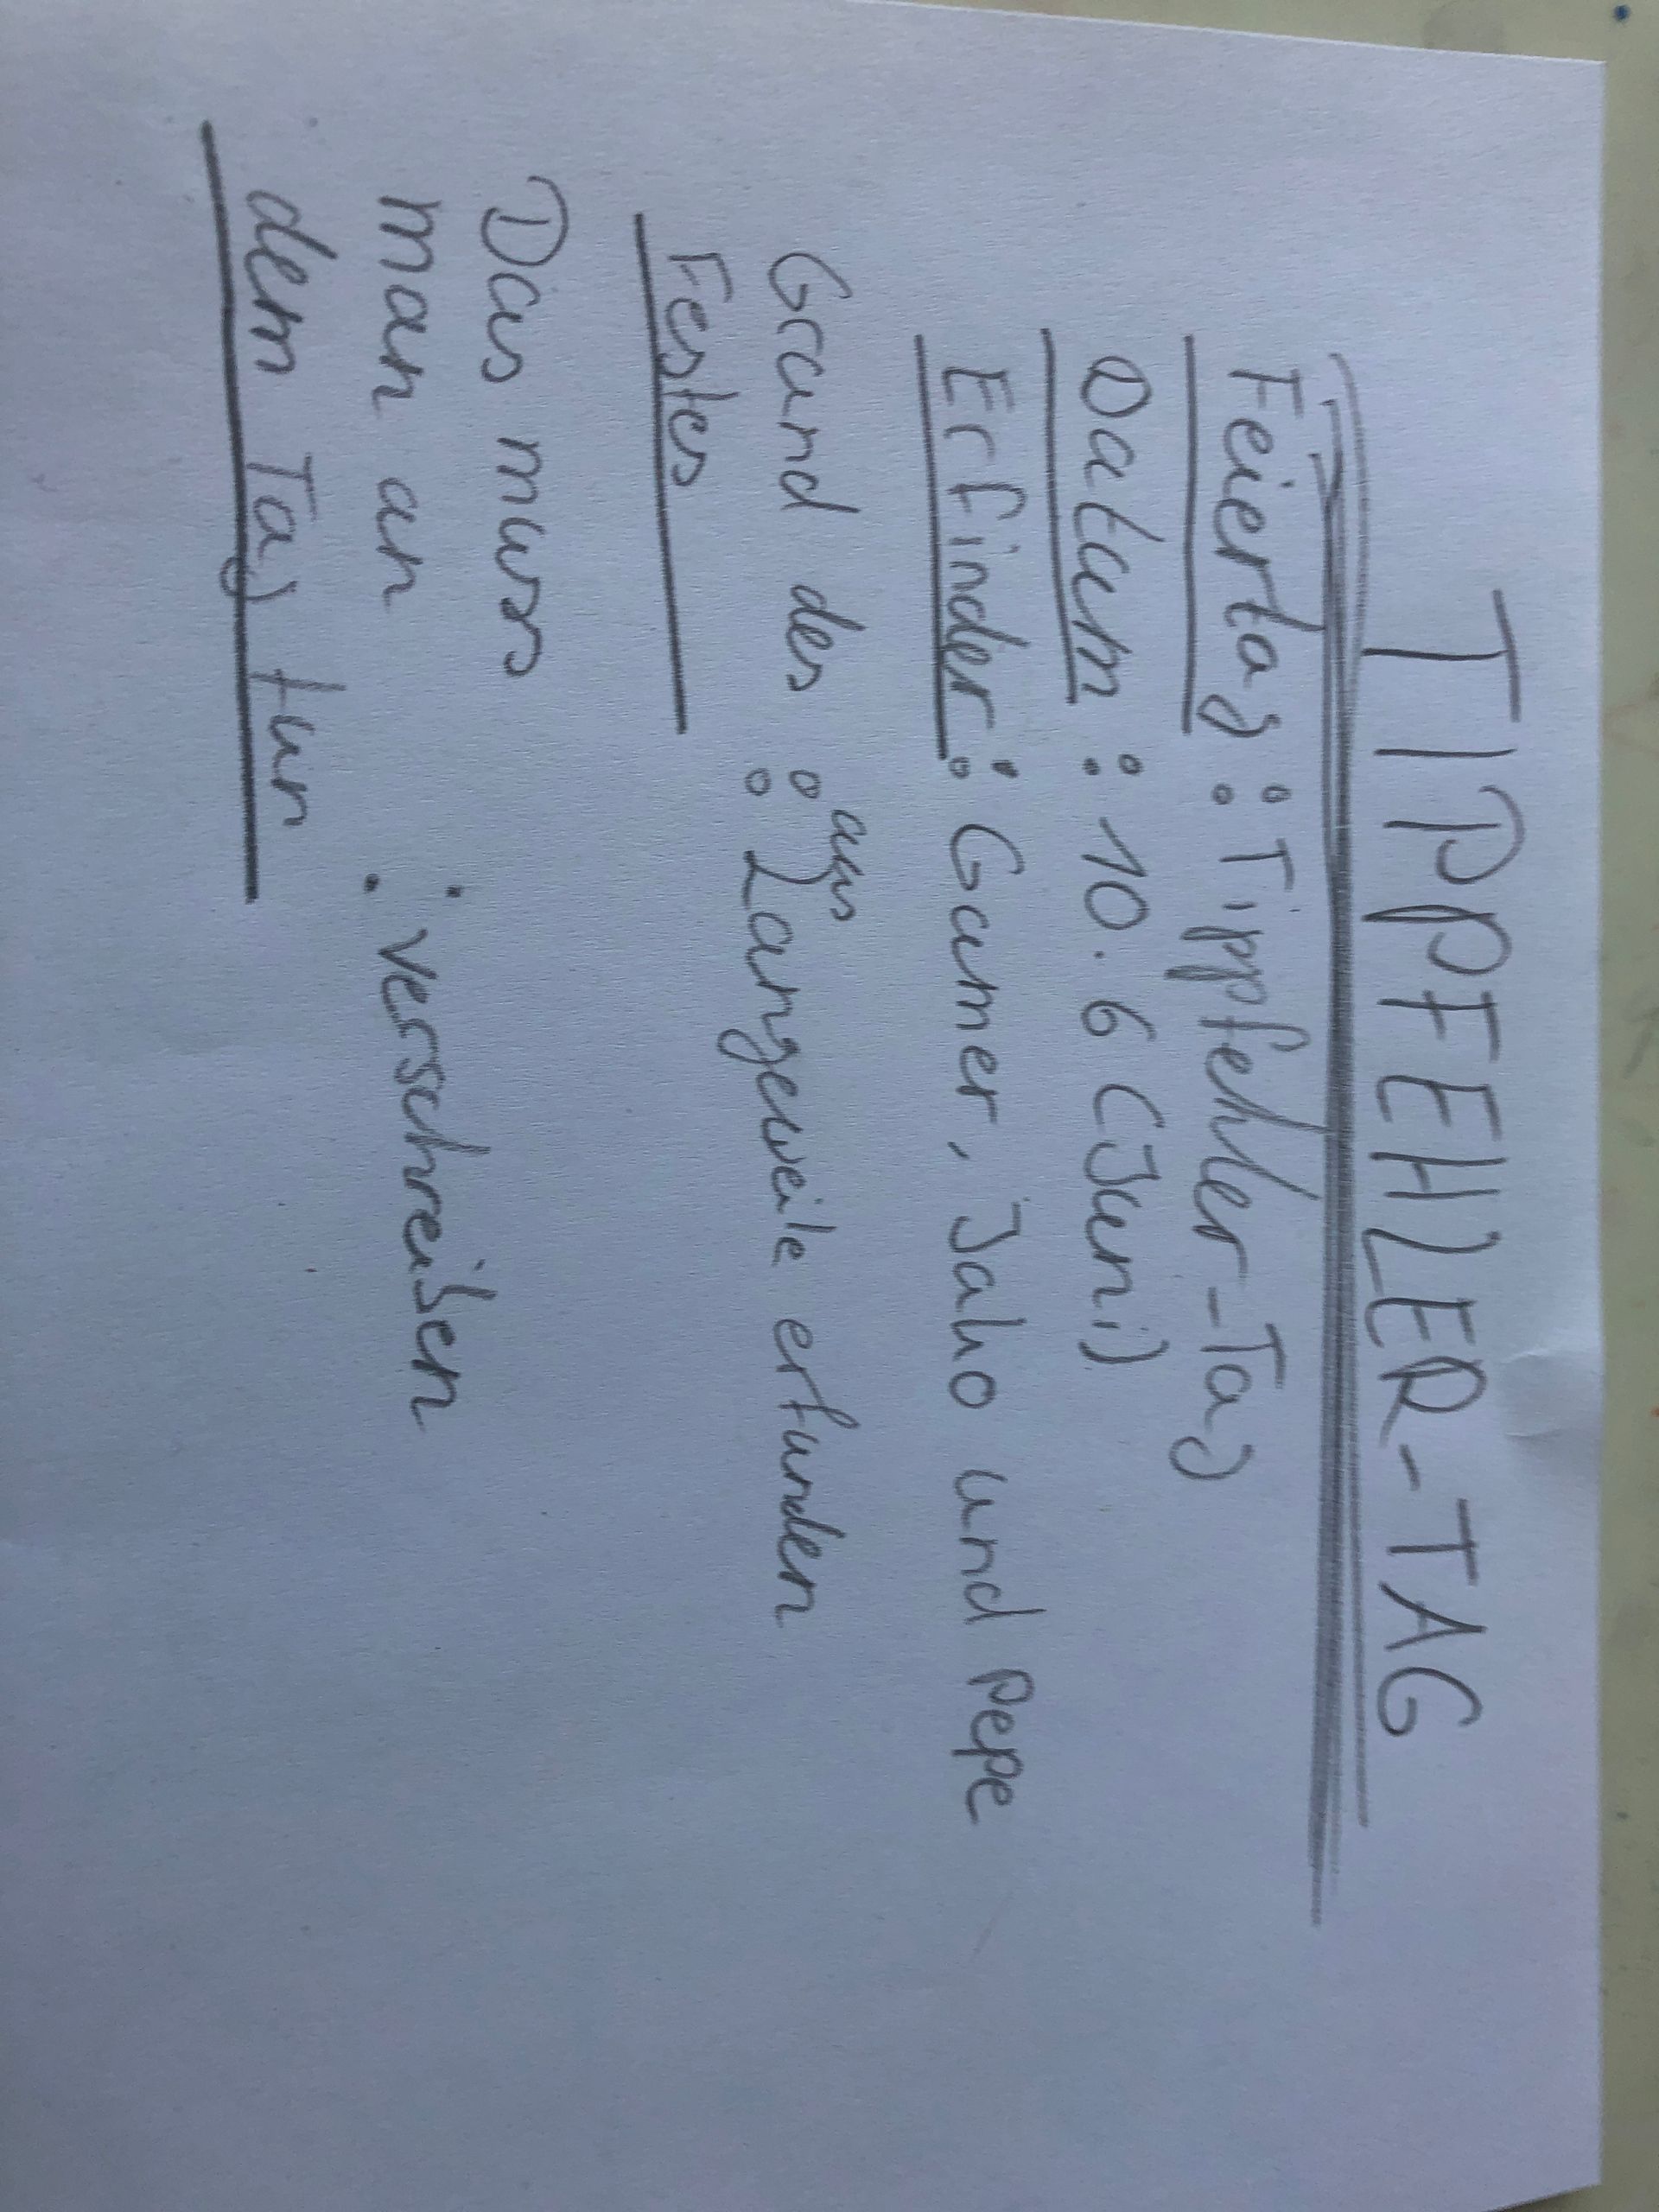 TIPPFEHLER-TAG
Feiertag : Tippfehler-Tag
Datum : 10.6 (Juni)
Erfinder : Gamer, Jaho und pepe
Grund des : aus Langeweile erfunden
Festes
Das muss
man an : verschreiben
dem Tag tun